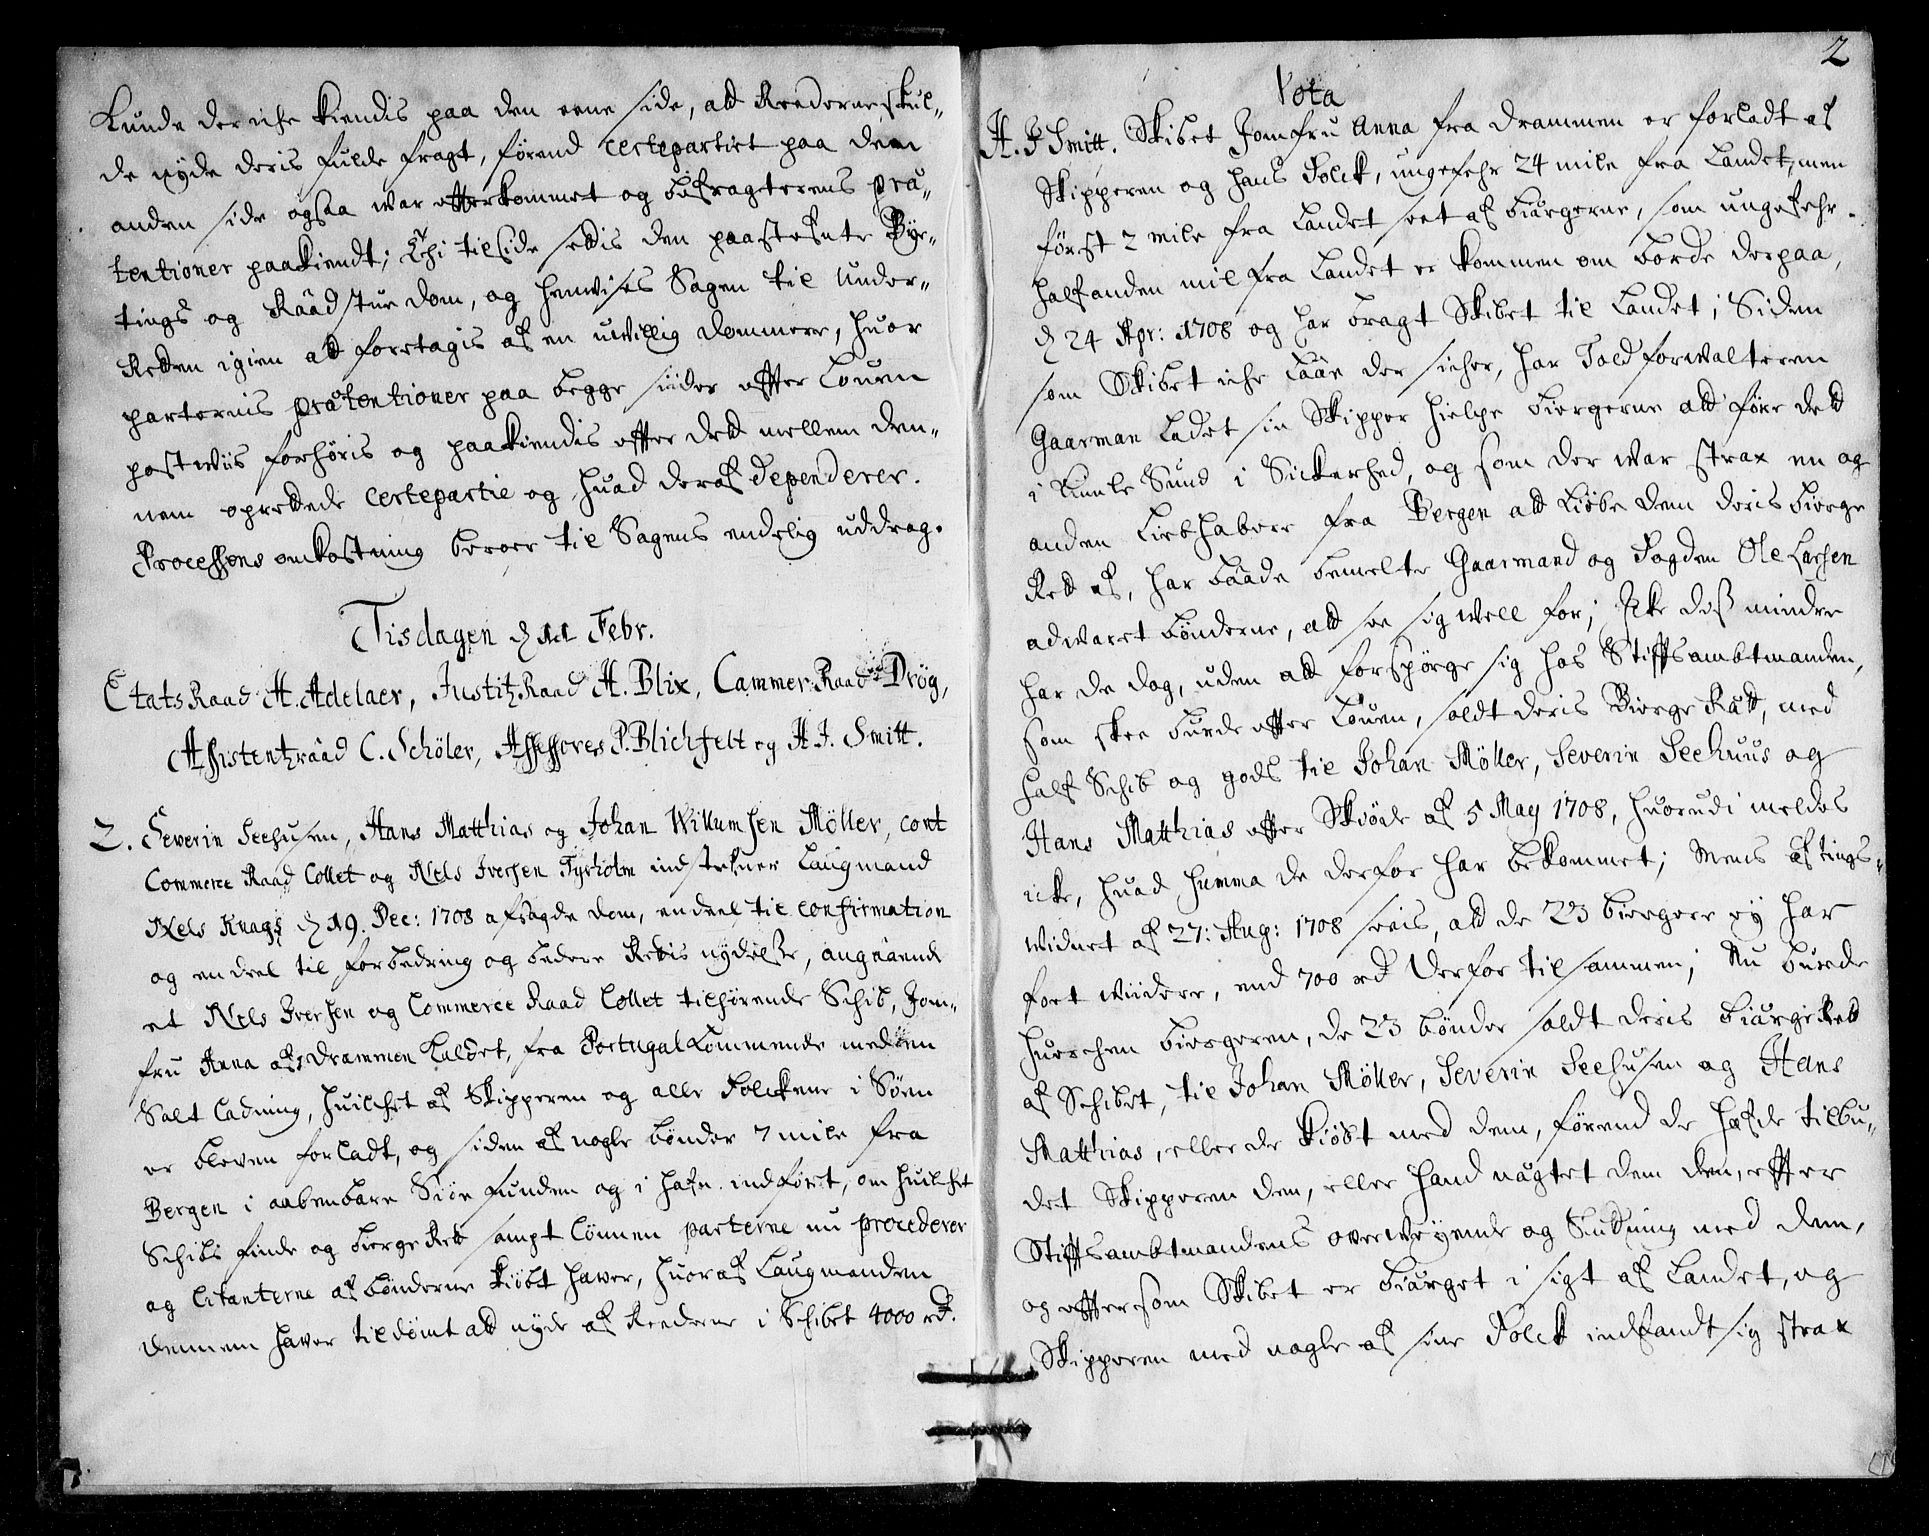 Kunde der icke kiendis paa den eene side, ald Reederne skul-
de nyde deris fulde fragt, førend Certepartiet paa den
anden side ogsaa war efterkommet og befragterens præ-
tentioner paakiendt; Thi til side settis den paastefnte Bye-
tings og Raadstue dom, og henvises Sagen til Under-
Retten igien att foretagis af en uwillig dommere, huor
parternis prætentioner paa begge siider efter Louen
postwiis forhøris og paakiendis efter dett mellem den-
nem oprettede Certepartie og huad deraf dependerer.
Processens omkostning beroer til Sagens endelig uddrag.
Tisdagen d 11 Febr.
EtatsRaad H. Adelaer, JustitzRaad H. Blix, CammerRaad Drög,
Assistentzraad C. Schöler, Assessores P. Blichfelt og H. J. Smitt.
2. Severin Seehusen, Hans Matthias og Johan Willumsen Möller, cont
Commerce Raad Collet og Niels Iversen Tyrholm indstefner Laugmand
Niels Knags d 19. Dec: 1708 afsagde dom, en deel til confirmation
og en deel til forbedring og bedere Rettis nydelse, angaaende
et Niels Iversen og Commerce Raad Collet tilhørende Schib, Jom-
fru Anna af Drammen kaldet, fra Portugal kommende med en
Salt Ladning, huilchet af Skipperen og alle Folckene i Søen
er bleven forladt, og siden af nogle bönder 7 mile fra
Bergen i aabenbare Siøe funden og i hafn indført, om huilchet
Schibs finde og bierge Rett sampt Lönnen parterne nu procederer
og Citanterne af bönderne kiöbt hawer, huoraf Laugmanden
dennem hawer tildömt att nyde af Reederne i Schibet 4000 rd.
2
Vota
H. J Smitt. Skibet Jomfru Anna fra Drammen er forladt af
Skipperen og hans Folck, ungefehr 24 mile fra Landet, men
først 2 mile fra Landet seet af biærgerne, som ungefehr
halfanden mil fra Landet er kommen om borde derpaa,
d 24 Apr: 1708 og har bragt Skibet til Landet; Siden
som Skibet icke laae der sicher, har Toldforwalteren
Gaarman ladet sin Skipper hielpe biergerne att före dett
i Sund i Sickerhed, og som der war strax en og
anden Liebhabere fra Bergen att kiöbe dem deris bierge
Rett af, har baade bemelte Gaarmand og Fogden Ole Larsen
adwaret bönderne, att see sig well for; Icke dess mindre
har de dog, uden att forspörge sig hos Stiftsambtmanden,
som skee burde efter Louen, soldt deris Bierge Rätt, med
half Schib og gods til Johan Möller, Severin Seehuus og
Hans Matthias efter Skiöde af 5 May 1708, huorudi meldes
icke, huad Summa de derfor har bekommet; Mens af tings-
widnet af 27: Aug: 1708 sees, att de 23 biergere ey har
faaet wiidere, end 700 rd derfor tilsammen; Nu burde
huerchen biergeren, de 23 bönder soldt deris biærge Rett
af Schibet, til Johan Möller, Severin Seehusen og Hans
Matthias, eller de kiöbt med dem, førend de hafde tilbu-
det Skipperen den, eller hand nægtet dem den, efter
Stiftsambtmandens overweyende og Slutning med dem,
og eftersom Skibet er biærget i sigt af Landet, og
Skipperen med nogle af sine Folck indfandt sig strax